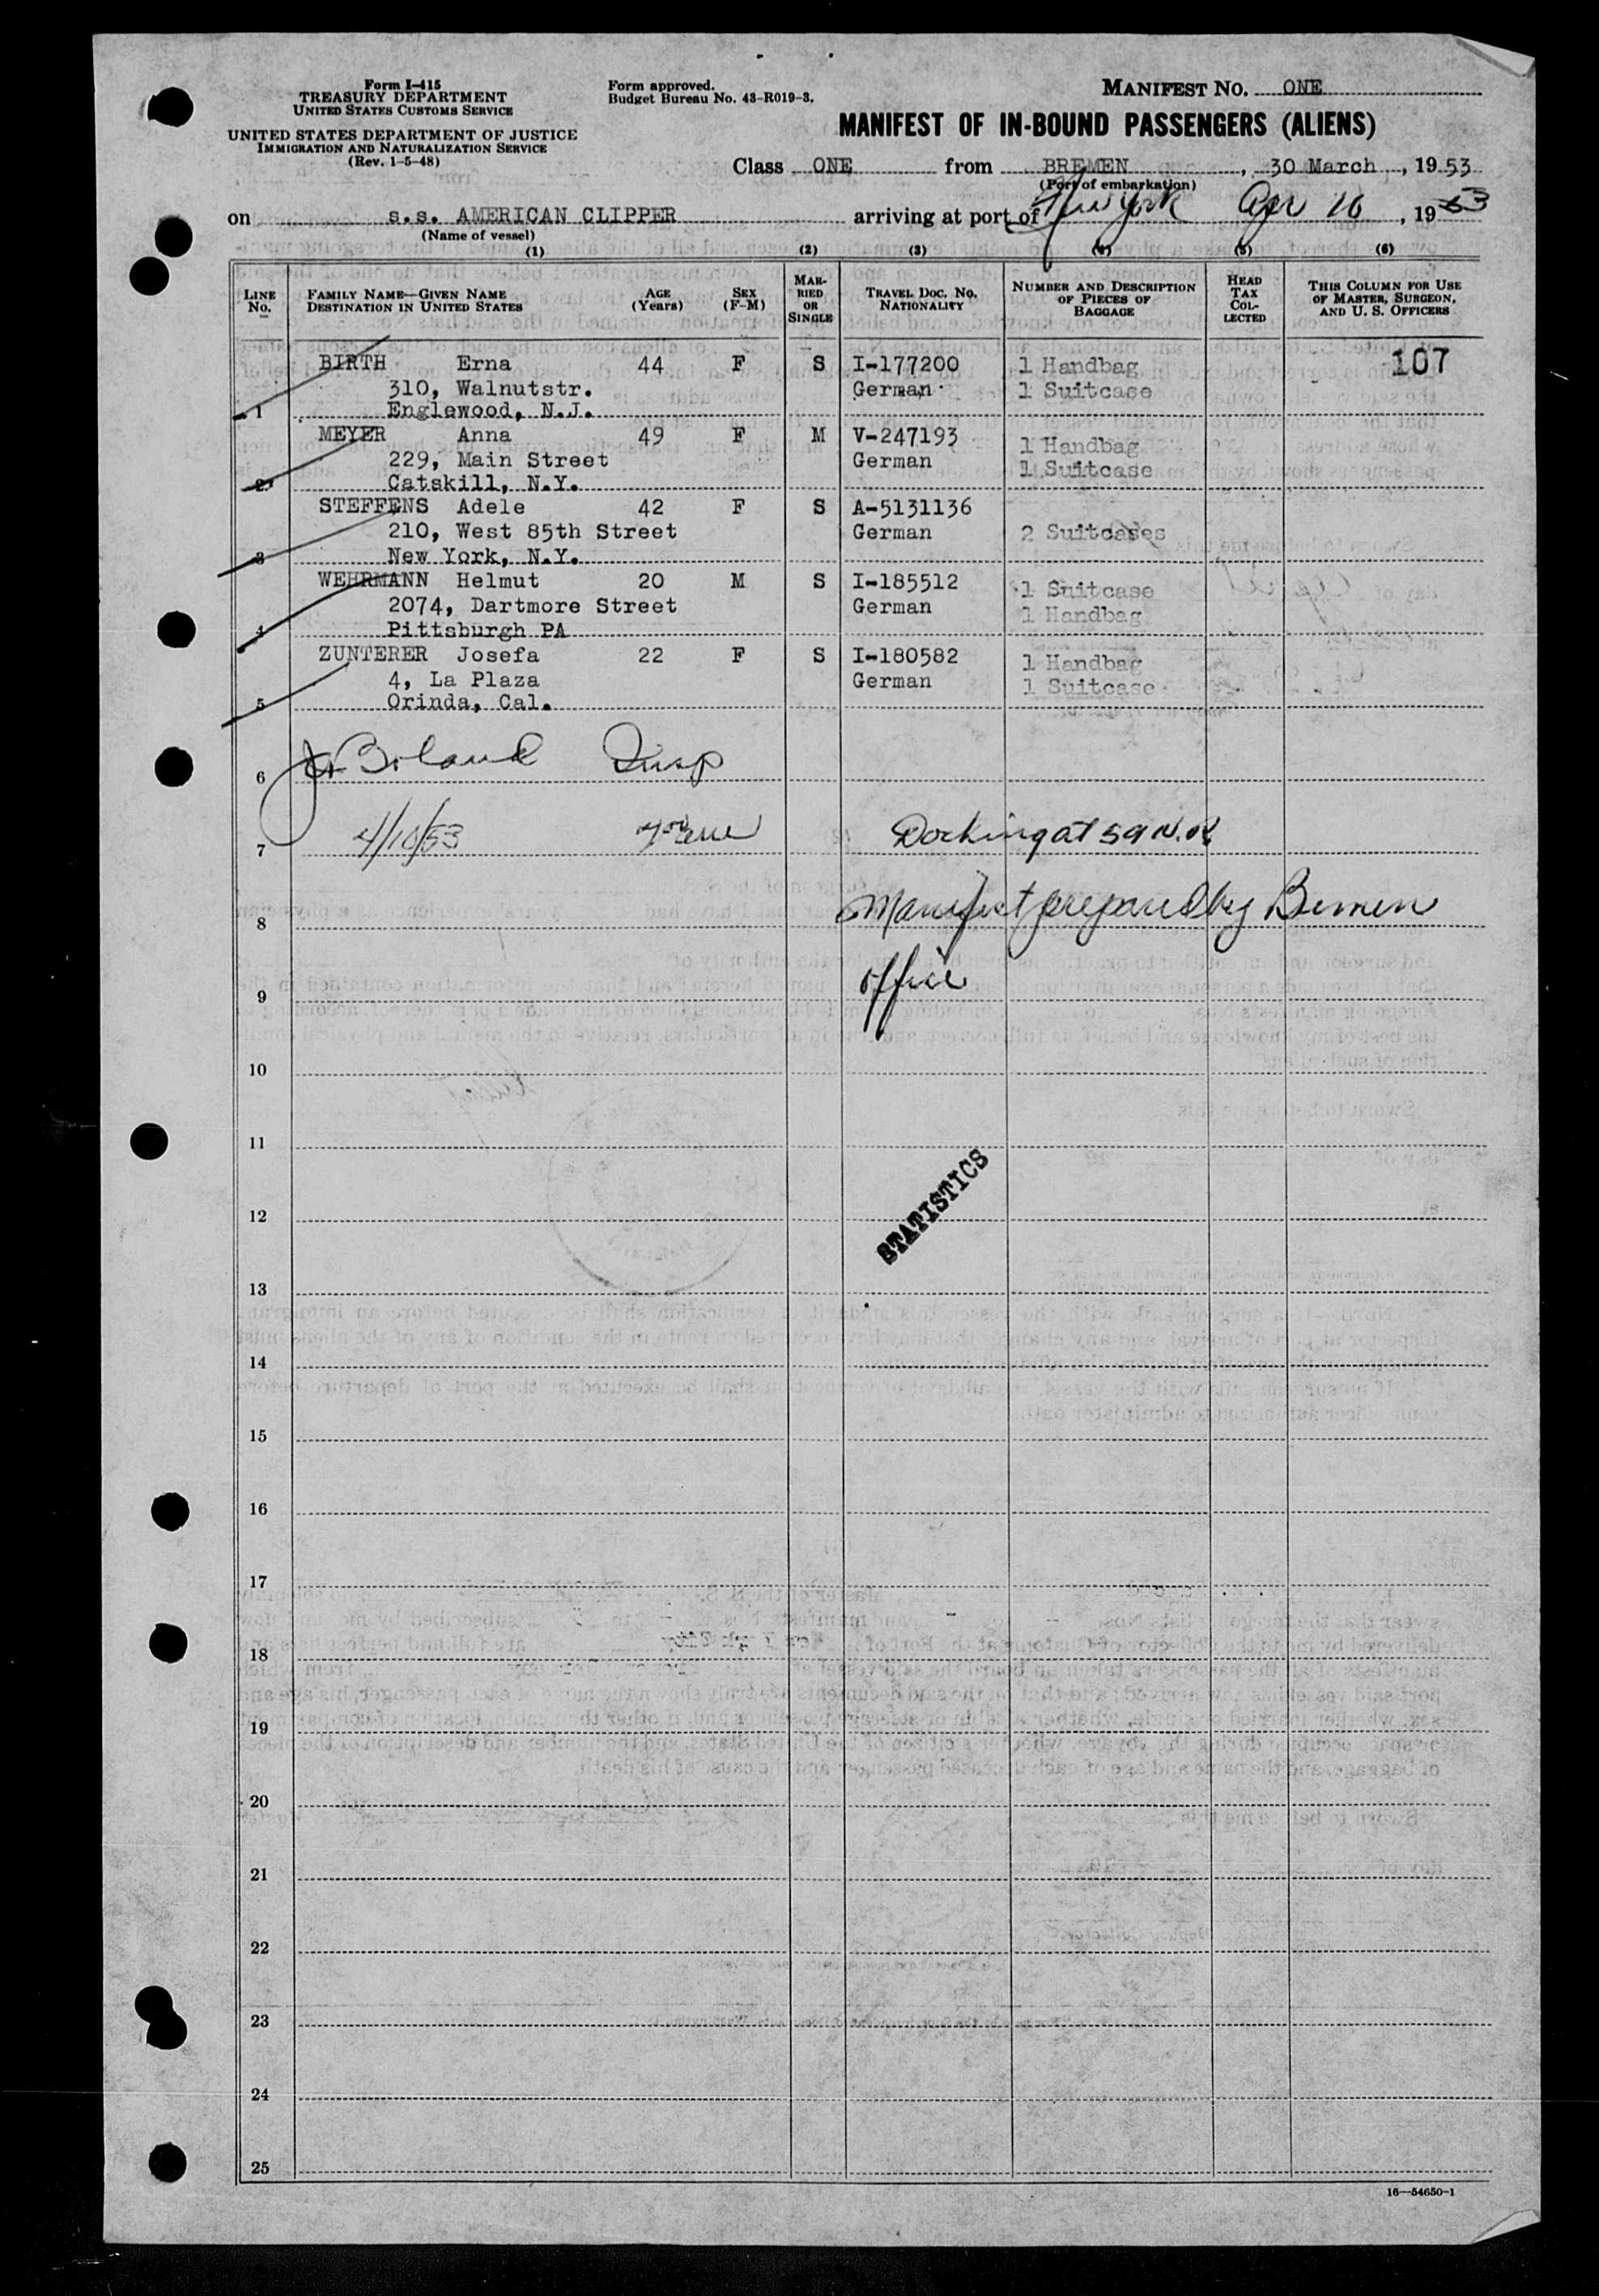 Form I-415
TREASURY DEPARTMENT
UNITED STATES CUSTOMS SERVICE
UNITED STATES DEPARTMENT OF JUSTICE
IMMIGRATION AND NATURALIZATION SERVICE
(Rev. 1-5-48)
Form approved.
Budget Bureau No. 43-R019-3.
MANIFEST NO. ONE
MANIFEST OF IN-BOUND PASSENGERS (ALIENS)
Class ONE from BREMEN, 30 March, 1953
(Port of embarkation)
on s.s. AMERICAN CLIPPER arriving at port of New York Apr 10, 1953
(Name of vessel)
(1) (2) (3) (4) (5) (6)
LINE NO. FAMILY NAME—GIVEN NAME DESTINATION IN UNITED STATES AGE (Years) SEX (F-M) MARRIED OR SINGLE TRAVEL DOC. NO. NATIONALITY NUMBER AND DESCRIPTION OF PIECES OF BAGGAGE HEAD TAX COLLECTED THIS COLUMN FOR USE OF MASTER, SURGEON, AND U. S. OFFICERS
BIRTH Erna 44 F S I-177200 1 Handbag 107
310, Walnutstr. German 1 Suitcase
1 Englewood, N.J.
MEYER Anna 49 F M V-247193 1 Handbag
229, Main Street German 1 Suitcase
2 Catskill, N.Y.
STEFFENS Adele 42 F S A-5131136
210, West 85th Street German 2 Suitcases
3 New York, N.Y.
WEHRMANN Helmut 20 M S I-185512 1 Suitcase
2074, Dartmore Street German 1 Handbag
4 Pittsburgh PA
ZUNTERER Josefa 22 F S I-180582 1 Handbag
4, La Plaza German 1 Suitcase
5 Orinda, Cal.
6 Boland Insp
7 4/10/53 Docking at 59 N.R.
8 Manifest prepared by Bremen
9 office
10
11
STATISTICS
12
13
14
15
16
17
18
19
20
21
22
23
24
25
16—54650-1